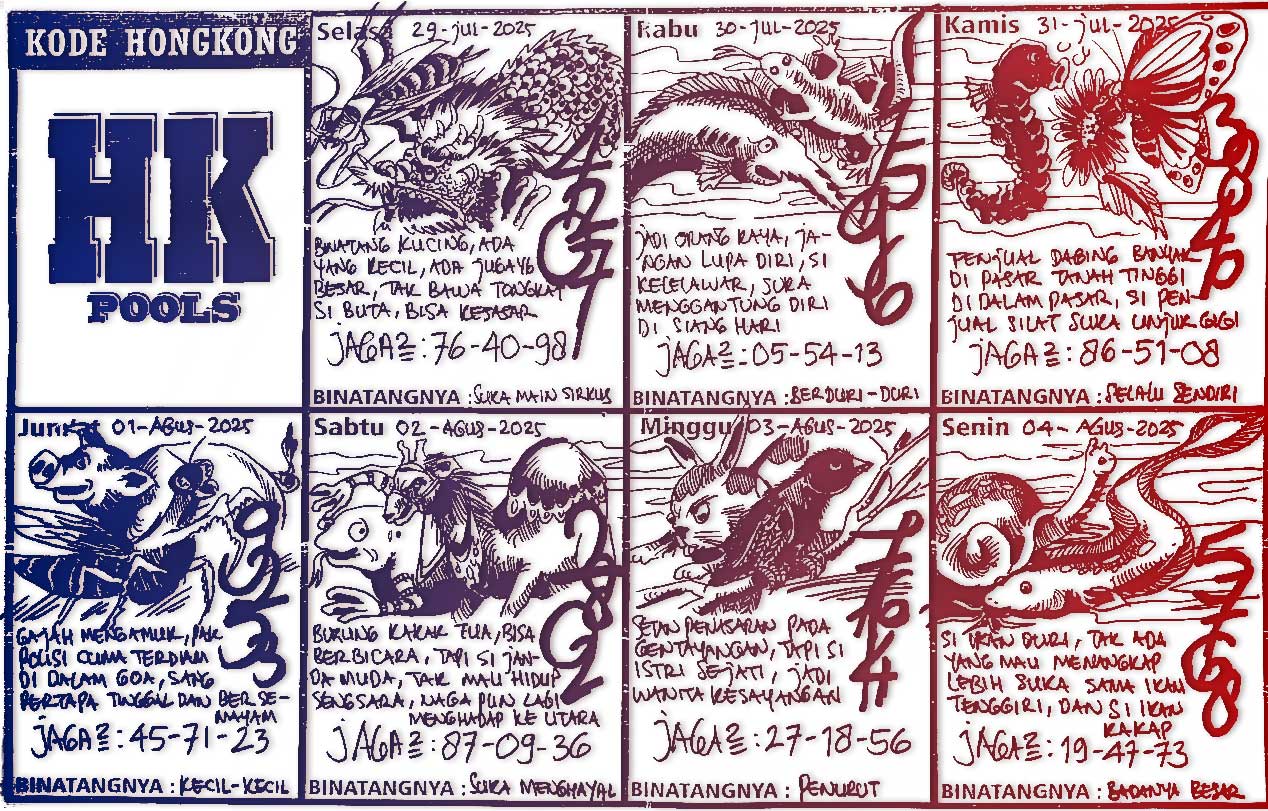 KODE HONGKONG
HK
POOLS
Selasa 29-JUL-2025
BINATANG KUCING, ADA
YANG KECIL, ADA JUGA YG
BESAR, TAK BAWA TONGKAT
SI BUTA, BISA KESASAR
JAGA2 : 76-40-98
BINATANGNYA : SUKA MAIN SIRKUS
Rabu 30-JUL-2025
JADI ORANG KAYA, JA-
NGAN LUPA DIRI, SI
KELELAWAR, SUKA
MENGGANTUNG DIRI
DI SIANG HARI
JAGA2 : 05-54-13
BINATANGNYA : BERDURI-DURI
Kamis 31-JUL-2025
3946
PENJUAL DAGING BANYAK
DI PASAR TANAH TINGGI
DI DALAM PASAR, SI PEN-
JUAL SILAT SUKA UNJUK GIGI
JAGA2 : 86-51-08
BINATANGNYA : SELALU SENDIRI
Jumat 01-AGUS-2025
GAJAH MENGAMUK, PAK
POLISI CUMA TERDIAM
DI DALAM GOA, SANG
PERTAPA TINGGAL DAN BERSE-
MAYAM
JAGA2 : 45-71-23
BINATANGNYA : KECIL-KECIL
Sabtu 02-AGUS-2025
BURUNG KAKAK TUA, BISA
BERBICARA, TAPI SI JAN-
DA MUDA, TAK MAU HIDUP
SENGSARA, NAGA PUN LAGI
MENGHADAP KE UTARA
JAGA2 : 87-09-36
BINATANGNYA : SUKA MENGHAYAL
Minggu 03-AGUS-2025
SETAN PENASARAN PADA
GENTAYANGAN, TAPI SI
ISTRI SEJATI, JADI
WANITA KESAYANGAN
JAGA2 : 27-18-56
BINATANGNYA : PENURUT
Senin 04-AGUS-2025
5768
SI IKAN DURI, TAK ADA
YANG MAU MENANGKAP
LEBIH SUKA SAMA IKAN
TENGGIRI, DAN SI IKAN
KAKAP
JAGA2 : 19-47-73
BINATANGNYA : BADANYA BESAR